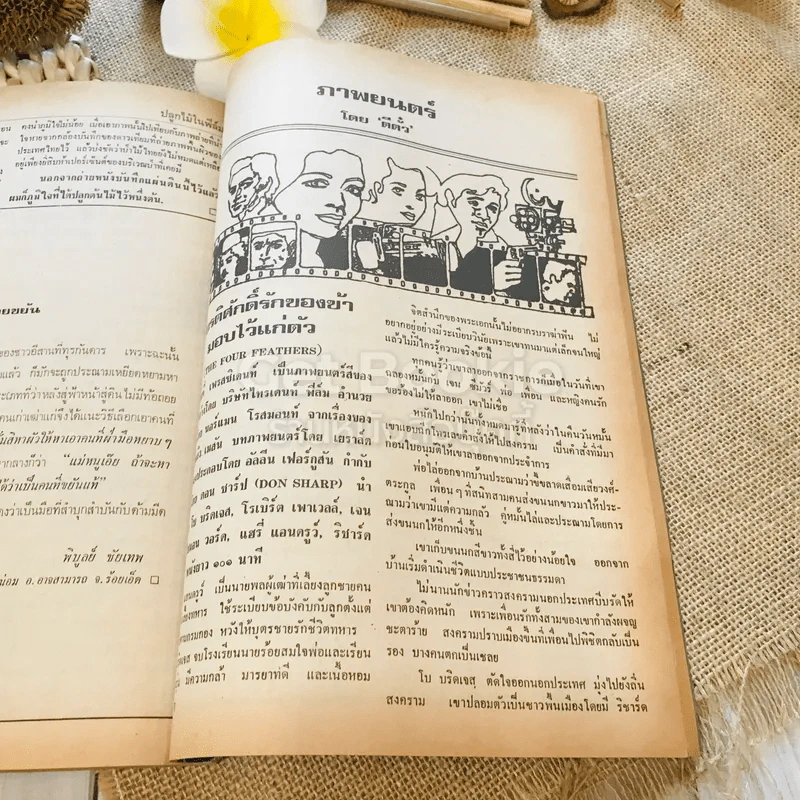 ปลูกไม้ในฟิล์ม
คงน่าภูมิใจไม่น้อย เมื่อเอาภาพนั้นไปเทียบกับภาพถ่ายที่
ใจหายจากกล้องบันทึกของดาวเทียมที่ถ่ายภาพพื้นผิวของ
ประเทศไทยไว้ แล้วบ่งชัดว่าป่าไม้ไทยยังไม่หมดแต่เหลือ
อยู่เพียงยี่สิบห้าเปอร์เซ็นต์ของบริเวณป่าที่เคยมี
นอกจากถ่ายหนังบันทึกแผ่นดินนี้ไว้แล้ว
ผมก็ภูมิใจที่ได้ปลูกต้นไม้ไว้หนึ่งต้น.
ยขยัน
ของชาวอีสานที่ทุรกันดาร เพราะฉะนั้น
แล้ว ก็มักจะถูกประณามเหยียดหยามหา
ระเภทที่ว่าหลังสู้ฟ้าหน้าสู้ดินไม่มีท้อถอย
คนเก่าเฒ่าแก่จึงได้แนะวิธีเลือกเอาคนที่
มสิหาผัวให้หาเอาคนที่ฝ่ามือหยาบๆ
ากลางก็ว่า "แม่หนูเอ๊ย ถ้าจะหา
ได้ว่าเป็นคนที่ขยันแท้"
งว่าเป็นเมียที่ลำบุกลำบันกับด้ามมีด
พิบูลย์ ชัยเทพ
น่อม อ.อาจสามารถ จ.ร้อยเอ็ด
ภาพยนตร์
โดย 'ตีตั๋ว'
รติศักดิ์รักของข้า
มอบไว้แก่ตัว
THE FOUR FEATHERS)
เพรสซิเดนท์ เป็นภาพยนตร์สีของ
โดย บริษัทไทรเดนท์ ฟิล์ม อำนวย
นอร์แมน โรสมอนท์ จากเรื่องของ
เมสัน บทภาพยนตร์โดย เยราลด์
ประกอบโดย อัลลีน เฟอร์กูสัน กำกับ
ดอน ชาร์ป (DON SHARP) นำ
โบ บริดเจส, โรเบิร์ต เพาเวลล์, เจน
มอน วอร์ด, แฮรี่ แอนดรูว์, ริชาร์ด
หนังยาว ๑๐๑ นาที
เป็นนายพลผู้เฒ่าที่เลี้ยงลูกชายคน
ทหาร ใช้ระเบียบข้อบังคับกับลูกตั้งแต่
านกรมกอง หวังให้บุตรชายรักชีวิตทหาร
ริดเจส จบโรงเรียนนายร้อยสมใจพ่อและเรียน
มีความกล้า มารยาทดี และเนื้อหอม
จิตสำนึกของพระเอกนั้นไม่อยากรบราฆ่าฟัน ไม่
อยากอยู่อย่างมีระเบียบวินัยเพราะเขาทนมาแต่เล็กจนใหญ่
แล้วไม่มีใครรู้ความจริงข้อนี้
ทุกคนรู้ว่าเขาลาออกจากราชการก็เมื่อในวันที่เขา
ฉลองหมั้นกับ เจน ซีมัวร์ พ่อ เพื่อน และหญิงคนรัก
ขอร้องไม่ให้ลาออก เขาไม่เชื่อ
หนักไปกว่านั้นทั้งหมดมารู้ที่หลังว่าในคืนวันหมั้น
เขาแอบฉีกโทรเลขคำสั่งให้ไปสงคราม เป็นคำสั่งที่มีมา
ก่อนใบอนุมัติให้เขาลาออกจากประจำการ
พ่อไล่ออกจากบ้านประณามว่าขี้ขลาดเสื่อมเสียวงศ์-
ตระกูล เพื่อนๆ ที่สนิทสามคนส่งขนนกขาวมาให้ประ-
ณามว่าเขามีแต่ความกลัว คู่หมั้นไล่และประณามโดยการ
ส่งขนนกให้อีกหนึ่งชิ้น
เขาเก็บขนนกสีขาวทั้งสี่ไว้อย่างน้อยใจ ออกจาก
บ้านเริ่มดำเนินชีวิตแบบประชาชนธรรมดา
ไม่นานนักข่าวคราวสงครามนอกประเทศบีบรัดให้
เขาต้องคิดหนัก เพราะเพื่อนรักทั้งสามของเขากำลังผจญ
ชะตาร้าย สงครามปราบเมืองขึ้นที่เพื่อนไปพิชิตกลับเป็น
รอง บางคนตกเป็นเชลย
โบ บริดเจส ตัดใจออกนอกประเทศ มุ่งไปยังถิ่น
สงคราม เขาปลอมตัวเป็นชาวพื้นเมืองโดยมี ริชาร์ด